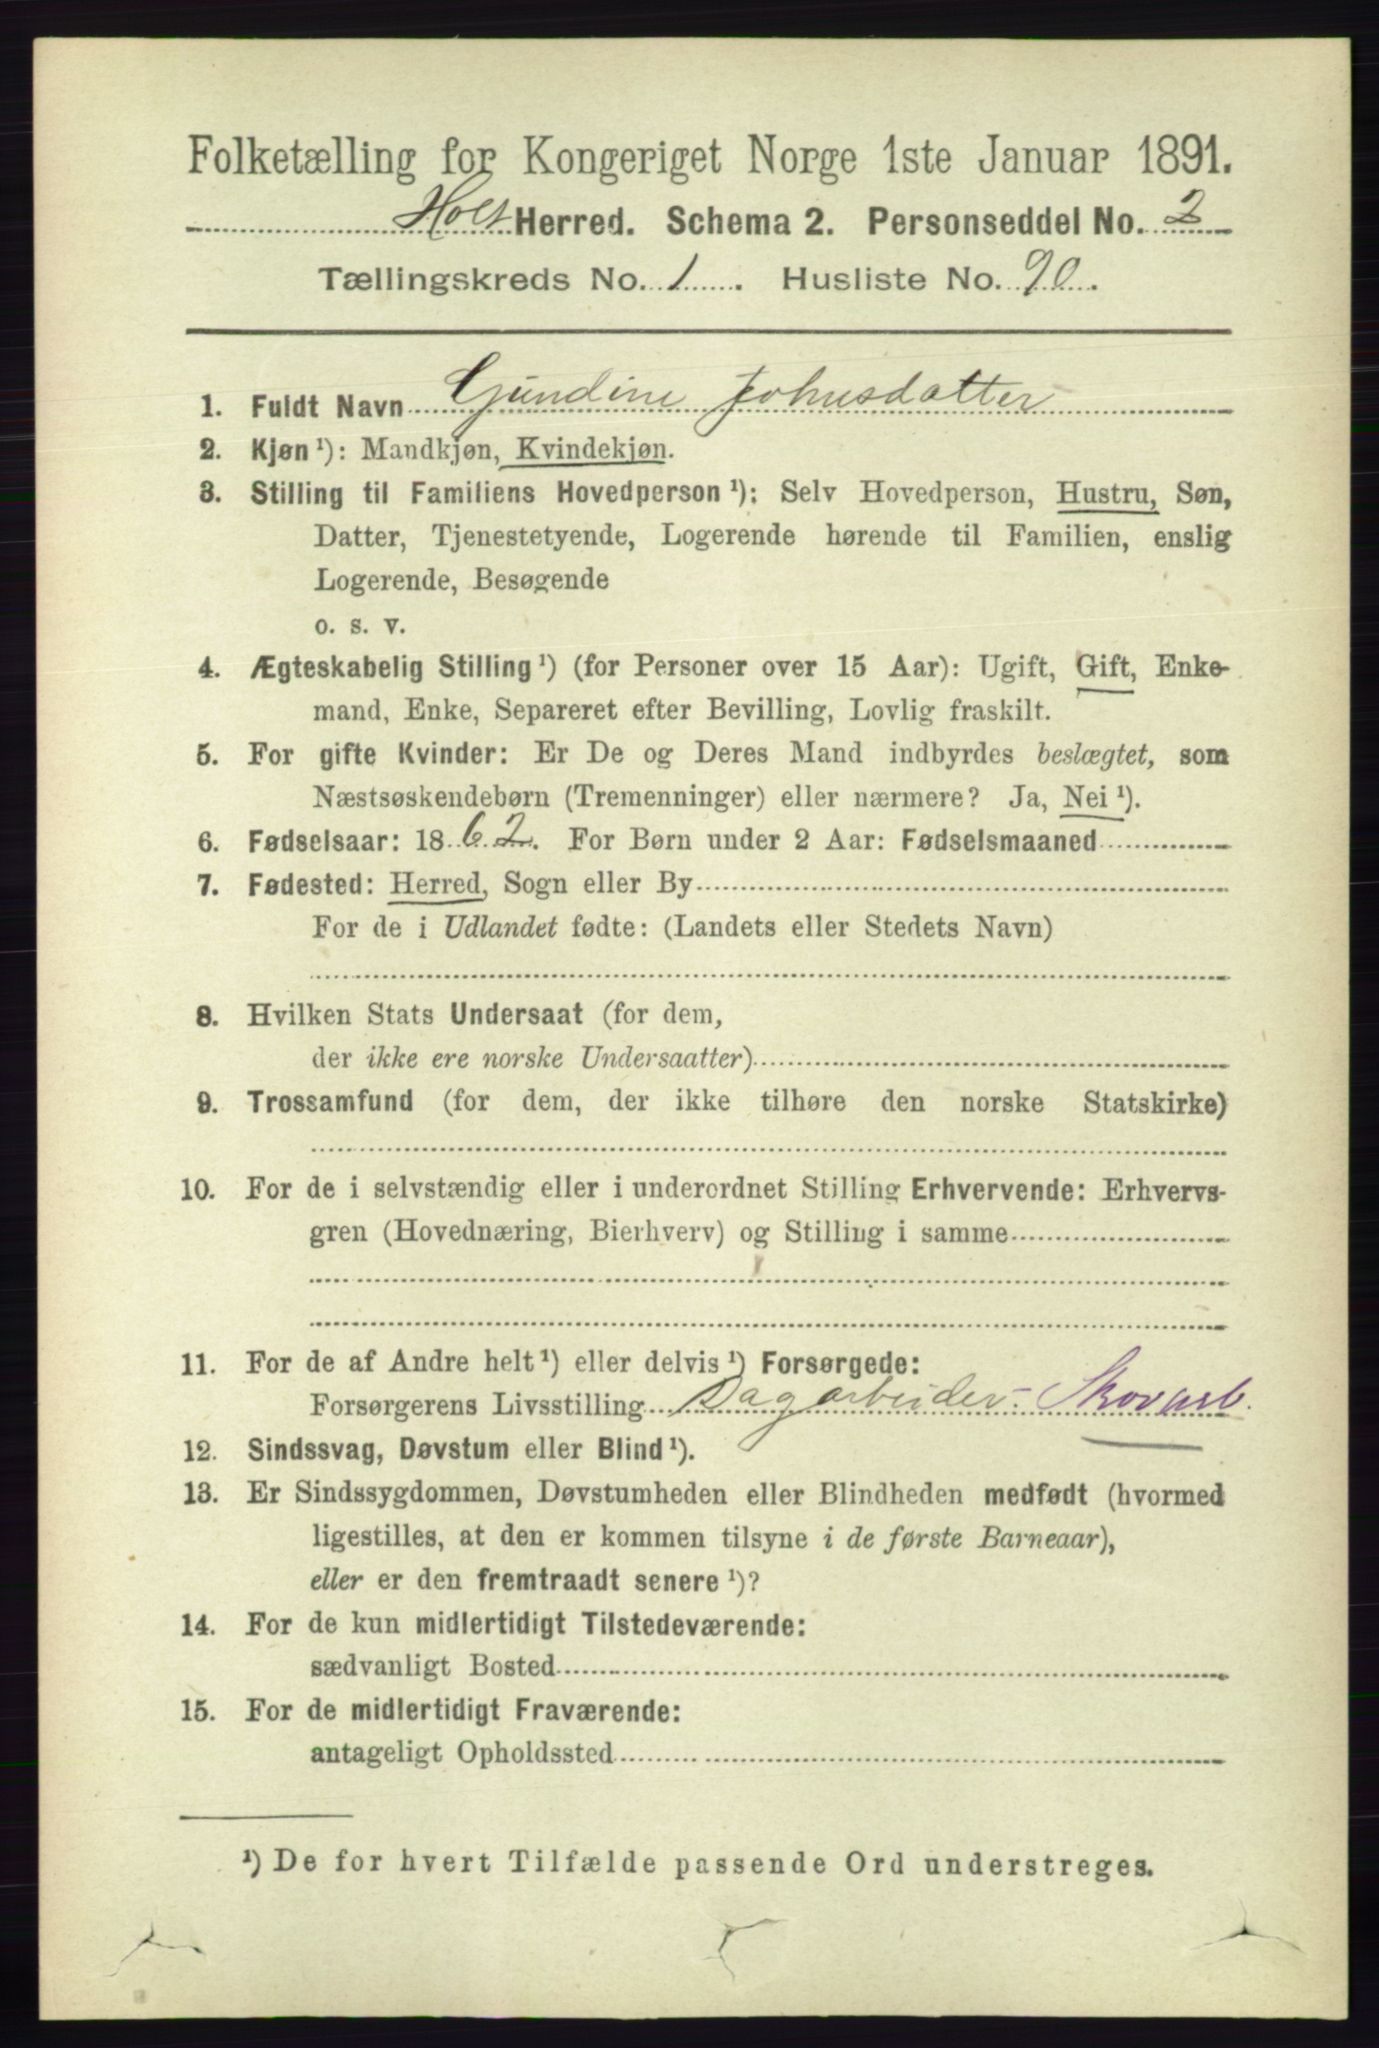 Folketælling for Kongeriget Norge 1ste Januar 1891.
Holt Herred. Schema 2. Personseddel No. 2
Tællingskreds No. 1. Husliste No. 90.
1. Fuldt Navn Gundine Johnsdatter
2. Kjøn ¹): Mandkjøn, Kvindekjøn.
3. Stilling til Familiens Hovedperson ¹): Selv Hovedperson, Hustru, Søn,
Datter, Tjenestetyende, Logerende hørende til Familien, enslig
Logerende, Besøgende
o. s. v.
4. Ægteskabelig Stilling ¹) (for Personer over 15 Aar): Ugift, Gift, Enke-
mand, Enke, Separeret efter Bevilling, Lovlig fraskilt.
5. For gifte Kvinder: Er De og Deres Mand indbyrdes beslægtet, som
Næstsøskendebørn (Tremenninger) eller nærmere? Ja, Nei ¹).
6. Fødselsaar: 1862. For Børn under 2 Aar: Fødselsmaaned
7. Fødested: Herred, Sogn eller By
For de i Udlandet fødte: (Landets eller Stedets Navn)
8. Hvilken Stats Undersaat (for dem,
der ikke ere norske Undersaatter)
9. Trossamfund (for dem, der ikke tilhøre den norske Statskirke)
10. For de i selvstændig eller i underordnet Stilling Erhvervende: Erhvervs-
gren (Hovednæring, Bierhverv) og Stilling i samme
11. For de af Andre helt ¹) eller delvis ¹) Forsørgede:
Forsørgerens Livsstilling Dagarbeider - Skovarb.
12. Sindssvag, Døvstum eller Blind ¹).
13. Er Sindssygdommen, Døvstumheden eller Blindheden medfødt (hvormed
ligestilles, at den er kommen tilsyne i de første Barneaar),
eller er den fremtraadt senere ¹)?
14. For de kun midlertidigt Tilstedeværende:
sædvanligt Bosted
15. For de midlertidigt Fraværende:
antageligt Opholdssted
¹) De for hvert Tilfælde passende Ord understreges.